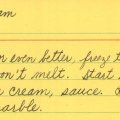 am
n even better, freeze t
on't melt. Start
e cream, sauce.
arble.